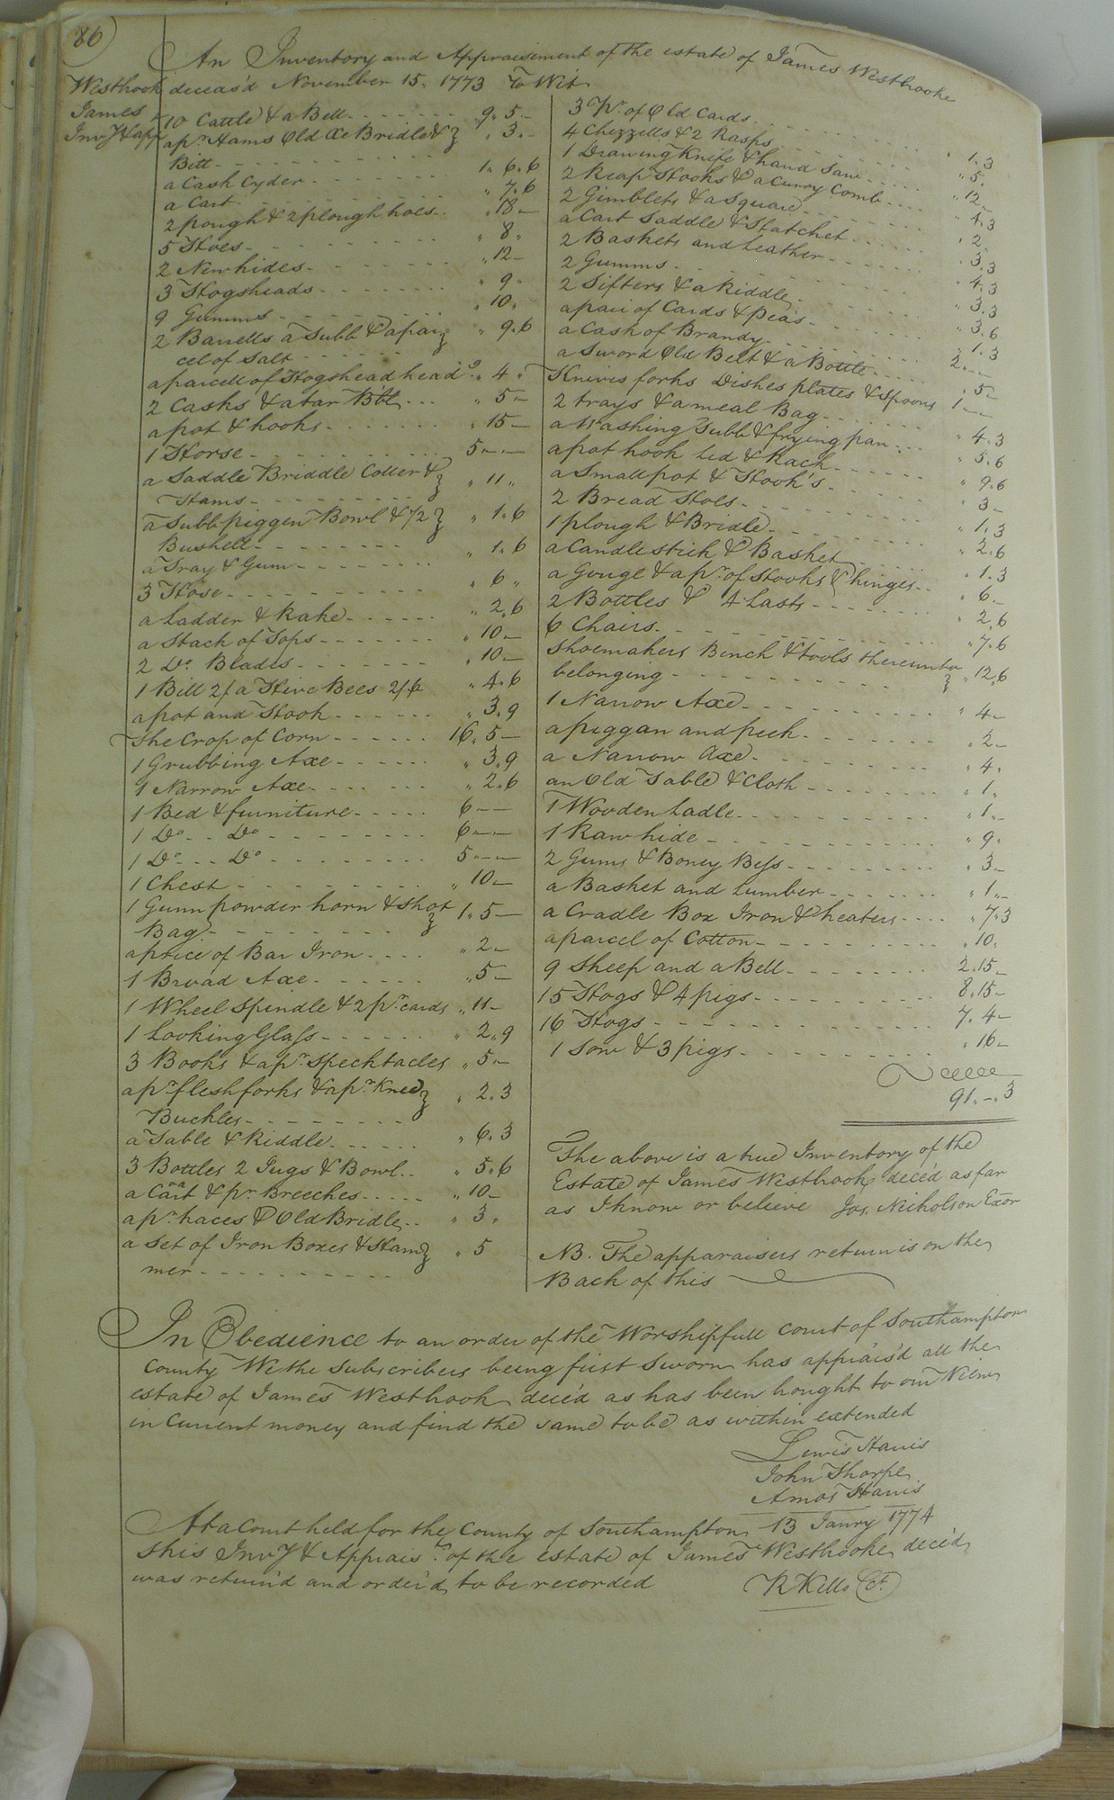 86
An Inventory and Appraisement of the estate of James Westbrooke
Westbrook deceas'd November 15. 1773 To Wit
James
Invy & app
10 Cattle & a Bell 9.5.-
apr. Hams Old Axe Bridle & " 3.-
Bitt
a Cask Cyder 1.6.6
a Cart " 7.6
2 pough & 2 plough hoes " 18-
5 Hoes " 8.
2 New hides " 12-
3 Hogsheads " 9.
9 Gumms " 10.
2 Barrells a Tubb & a par " 9.6
cel of Salt
a parcell of Hogshead heads " 4.
2 Casks & a tar Bbl " 5-
a pot & hooks " 15-
1 Horse 5--
a Saddle Briddle Coller & " 11"
Hams
a Tubb piggen Bowl & 1/2 " 1.6
Bushell
a Tray & Gum " 1.6
3 Hose " 6"
a Ladder & Rake " 2.6
a Stack of Tops " 10-
2 Do. Blades " 10-
1 Bill 2/ a Hive Bees 2/6 " 4.6
a pot and Hook " 3.9
The Crop of Corn 16.5-
1 Grubbing Axe " 3.9
1 Narrow Axe " 2.6
1 Bed & furniture 6--
1 Do Do 6--
1 Do Do 5--
1 Chest " 10-
1 Gunn powder horn & Shot 1.5-
Bag
a peice of Bar Iron " 2-
1 Broad Axe " 5-
1 Wheel Spindle & 2 pr. cards " 11-
1 Looking Glass " 2.9
3 Books & apr Specktacles " 5-
apr fleshforks & apr Knee " 2.3
Buckles
a Table & Riddle " 6.3
3 Bottles 2 Jugs & Bowl " 5.6
a Coat & pr Breeches " 10-
apr. traces & Old Bridle " 3.
a Set of Iron Boxes & Ham " 5
mer
3 Pr. of Old Cards " 1.3
4 Chizzells & 2 Rasps " 5.
1 Drawing Knife & hand Saw " 12-
2 Reap Hooks & a Curry Comb " 4.3
2 Gimblets & a Square " 2.
a Cart Saddle & Hatchet " 3.3
2 Baskets and Leather " 4.3
2 Gumms " 3.3
2 Sifters & a Riddle " 3.6
a pair of Cards & Peas " 1.3
a Cask of Brandy 2--
a Sword Old Belt & a Bottle " 5-
Knives forks Dishes plates & Spoons 1--
2 trays & a meal Bag " 4.3
a Washing Tubb & frying pan " 5.6
a pot hook Lid & Rack " 9.6
a Small pot & Hook's " 3-
2 Bread Hoes " 1.3
1 plough & Bridle " 2.6
a Candlestick & Basket " 1.3
a Gouge & a pr. of Hooks & hinges " 6-
2 Bottles & 4 Lasts " 2.6
6 Chairs " 7.6
Shoemakers Bench & tools thereunto " 12.6
belonging
1 Narrow Axe " 4-
a piggan and peck " 2-
a Narrow axe " 4.
an Old Table & Cloth " 1.
1 Wooden Ladle " 1-
1 Rawhide " 9.
2 Gums & Boney Bess " 3-
a Basket and Lumber " 1-
a Cradle Box Iron & heaters " 7.3
a parcel of Cotton " 10.
9 Sheep and a Bell 2.15-
15 Hogs & 4 pigs 8.15-
16 Hogs 7.4-
1 Sow & 3 pigs " 16-
91.-.3
The above is a true Inventory of the
Estate of James Westbrook dece'd as far
as I know or believe Jos. Nicholson Exor
NB. The apparaisers return is on the
Back of this
In Obedience to an order of the Worshipfull court of Southampton
County We the Subscribers being first Sworn has apprais'd all the
estate of James Westbrook dece'd as has been bought to our View
in Current money and find the same to be as within extended
Lewis Harris
John Thorpe
Amos Harris
At a Court held for the County of Southampton 13 Janry 1774
this Invy & Appraist. of the estate of James Westbrooke dece'd
was return'd and order'd to be recorded R Kello Ct.